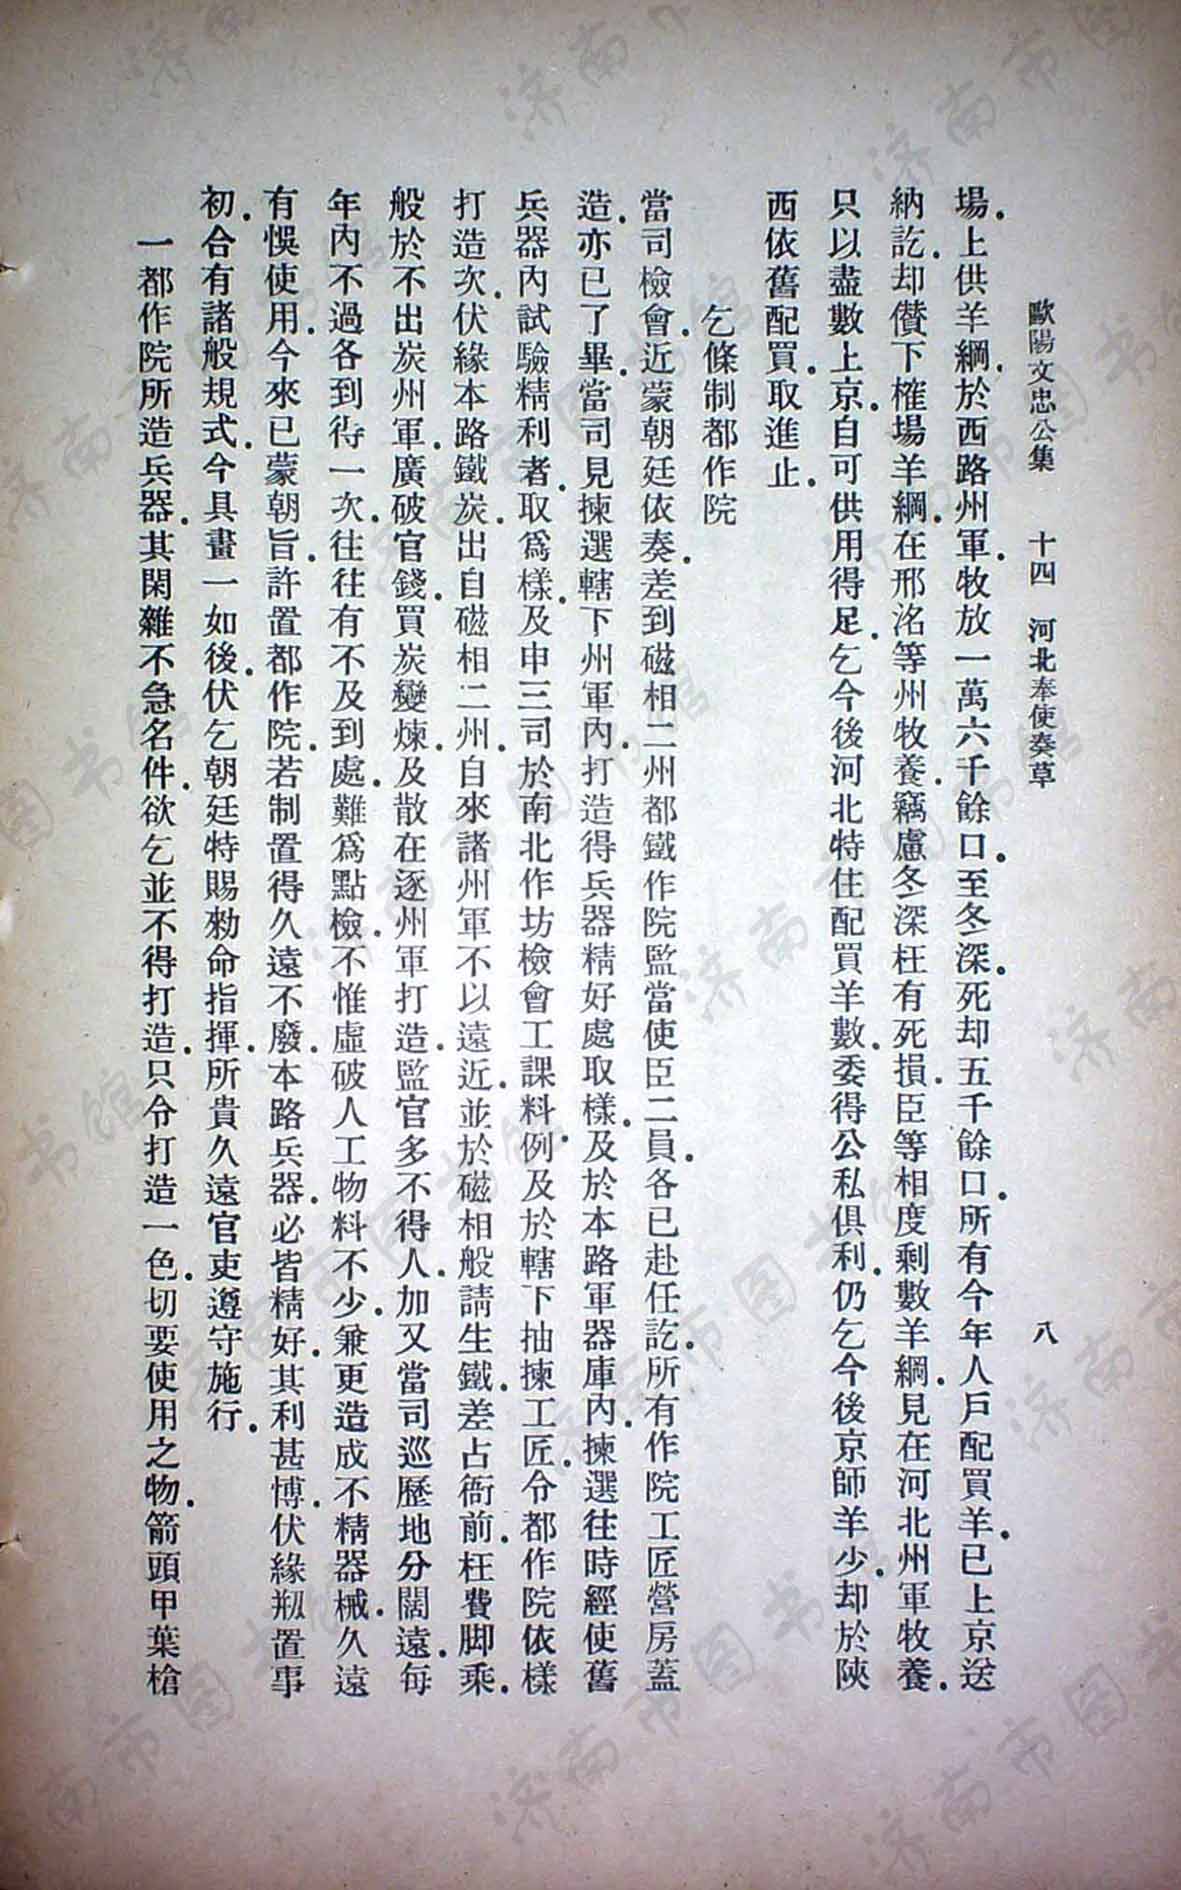 歐陽文忠公集　十四　河北奉使奏草　八
場．上供羊綱．於西路州軍．牧放一萬六千餘口．至冬深．死却五千餘口．所有今年人戶配買羊．已上京送
納訖．却儹下榷場羊綱．在邢洺等州牧養．竊慮冬深枉有死損．臣等相度剩數羊綱．見在河北州軍牧養．
只以盡數上京．自可供用得足．乞今後河北特住配買羊數．委得公私俱利．仍乞今後京師羊少．却於陝
西依舊配買．取進止．
乞條制都作院
當司檢會．近蒙朝廷依奏．差到磁相二州都鐵作院監當使臣二員．各已赴任訖．所有作院工匠營房蓋
造．亦已了畢．當司見揀選轄下州軍內．打造得兵器精好處取樣．及於本路軍器庫內．揀選往時經使舊
兵器內試驗精利者．取爲樣．及申三司於南北作坊檢會工課料例．及於轄下抽揀工匠．令都作院依樣
打造次．伏緣本路鐵炭．出自磁相二州．自來諸州軍不以遠近．並於磁相般請生鐵．差占衙前．枉費脚乘．
般於不出炭州軍．廣破官錢．買炭變煉．及散在逐州軍打造．監官多不得人．加又當司巡歷地分闊遠．每
年內不過各到得一次．往往有不及到處．難爲點檢．不惟虛破人工物料不少．兼更造成不精器械．久遠
有悞使用．今來已蒙朝旨．許置都作院．若制置得久遠不廢．本路兵器．必皆精好．其利甚博．伏緣剏置事
初．合有諸般規式．今具畫一如後．伏乞朝廷特賜勑命指揮．所貴久遠官吏遵守施行．
一都作院所造兵器．其閑雜不急名件．欲乞並不得打造．只令打造一色．切要使用之物．箭頭甲葉槍